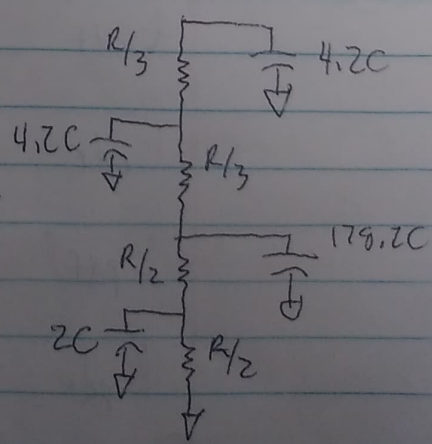 R/3
4.2C
4.2C
R/3
178.2C
R/2
2C
R/2